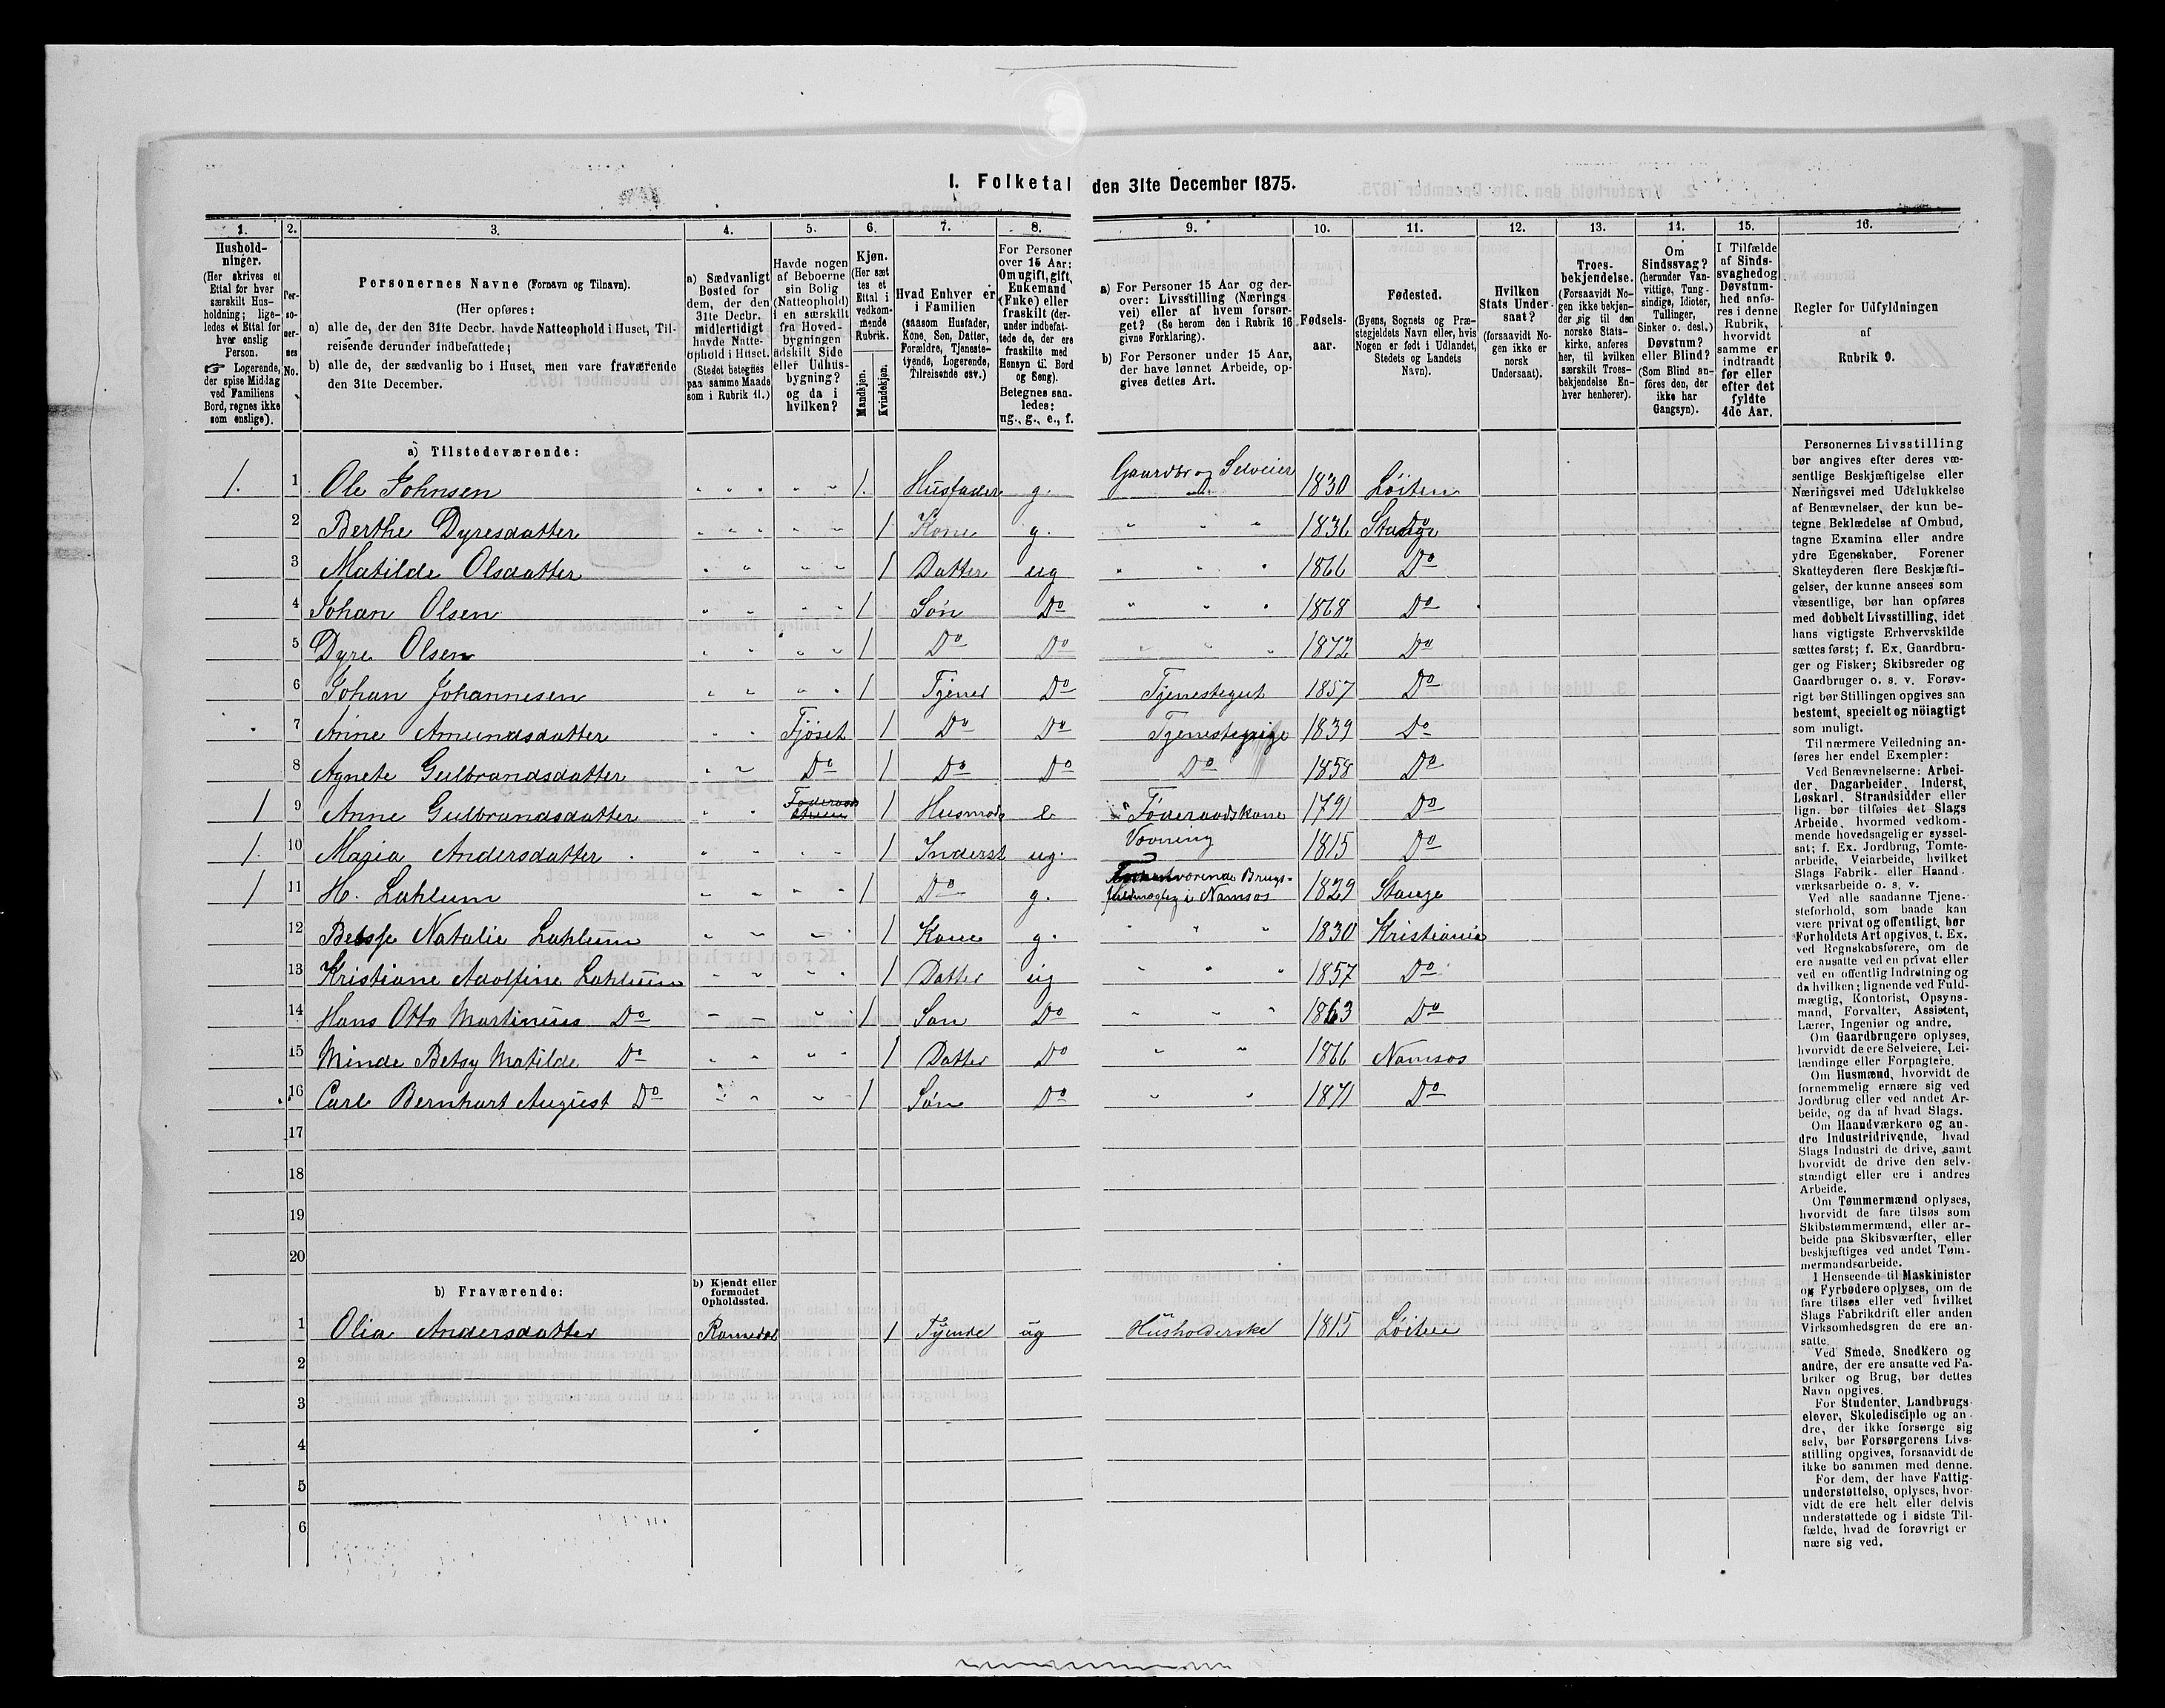 I. Folketal den 31te December 1875.
1. 2. 3. 4. 5. 6. 7. 8. 9. 10. 11. 12. 13. 14. 15. 16.
Hushold-
ninger.
(Her skrives et
Ettal for hver
særskilt Hus-
holdning; lige-
ledes et Ettal for
hver enslig
Person.
☞ Logerende,
der spise Middag
ved Familiens
Bord, regnes ikke
som enslige).
Per-
so-
ner-
nes
No.
Personernes Navne (Fornavn og Tilnavn).
(Her opføres:
a) alle de, der den 31te Decbr. havde Natteophold i Huset, Til-
reisende derunder indbefattede;
b) alle de, der sædvanlig bo i Huset, men vare fraværende
den 31te December.
a) Sædvanligt
Bosted for
dem, der den
31te Decbr.
midlertidigt
havde Natte-
ophold i Huset.
(Stedet betegnes
paa samme Maade
som i Rubrik 11.)
Havde nogen
af Beboerne
sin Bolig
(Natteophold)
i en særskilt
fra Hoved-
bygningen
adskilt Side
eller Udhus-
bygning?
og da i
hvilken?
Kjøn.
(Her sæt
tes et
Ettal i
vedkom-
mende
Rubrik.
Mandkjøn.
Kvindekjøn.
Hvad Enhver er
i Familien
(saasom Husfader,
Kone, Søn, Datter,
Forældre, Tjeneste-
tyende, Logerende,
Tilreisende osv.)
For Personer
over 15 Aar:
Om ugift, gift,
Enkemand
(Enke) eller
fraskilt (der-
under indbefat-
tede de, der ere
fraskilte med
Hensyn til Bord
og Seng).
Betegnes saa-
ledes:
ug., g., e., f.
a) For Personer 15 Aar og der-
over: Livsstilling (Nærings
vei) eller af hvem forsør-
get? (Se herom den i Rubrik 16
givne Forklaring).
b) For Personer under 15 Aar,
der have lønnet Arbeide, op-
gives dettes Art.
Fødsels-
aar.
Fødested.
(Byens, Sognets og Præ-
stegjeldets Navn eller, hvis
Nogen er født i Udlandet,
Stedets og Landets
Navn).
Hvilken
Stats Under-
saat?
(forsaavidt No-
gen ikke er
norsk
Undersaat).
Troes-
bekjendelse.
(Forsaavidt No-
gen ikke bekjen-
der sig til den
norske Stats-
kirke, anføres
her, til hvilken
særskilt Troes-
bekjendelse En-
hver henhører).
Om
Sindssvag?
(herunder Van-
vittige, Tung-
sindige, Idioter,
Tullinger,
Sinker o. desl.)
Døvstum?
eller Blind?
(Som Blind an-
føres den, der
ikke har
Gangsyn).
I Tilfælde
af Sinds-
svaghed og
Døvstum-
hed anfø-
res i denne
Rubrik,
hvorvidt
samme er
indtraadt
før eller
efter det
fyldte
4de Aar.
Regler for Udfyldningen
af
Rubrik 9.
a) Tilstedeværende:
1. 1 Ole Johnsen 1. Husfader g. Gaardbr og Selveier 1830 Löiten
2 Berthe Dyresdatter 1 Kone g. 1836 Stange
3 Matilde Olsdatter 1 Datter ug 1866 Do
4 Johan Olsen 1 Sön Do 1868 Do
5 Dyre Olsen 1 Do Do 1872 Do
6 Johan Johannesen 1 Tjener Do Tjenestegut 1857 Do
7 Anne Amundsdatter Fjöset 1 Do Do Tjenestepige 1839 Do
8 Agnete Gulbrandsdatter Do 1 Do Do Do 1858 Do
1 9 Anne Gulbrandsdatter 1 Husmoder e Föderaadskone 1791 Do
1. 10 Maria Andersdatter 1 Inderst ug. Vovning 1815 Do
1 11 H. Lahlum 1 Do g. Brugs-
fuldmægtig i Namsos 1829 Stange
12 Natalie Lahlum 1 Kone g. 1830 Kristiania
13 Kristiane Adolfine Lahlum 1 Datter ug 1857 Do
14 Hans Otto Martinius Do 1 Sön Do 1863 Do
15 Minde Betsy Matilde Do 1 Datter Do 1866 Namsos
16 Carl Bernhart August Do 1 Sön Do 1871 Do
17
18
19
20
b) Fraværende:
b) Kjendt eller
formodet
Opholdssted.
1 Olia Andersdatter Romedal 1 Tyende ug Husholderske 1815 Löiten
2
3
4
5
6
Personernes Livsstilling
bør angives efter deres væ-
sentlige Beskjæftigelse eller
Næringsvei med Udelukkelse
af Benævnelser, der kun be-
tegne Beklædelse af Ombud,
tagne Examina eller andre
ydre Egenskaber. Forener
Skatteyderen flere Beskjæfti-
gelser, der kunne ansees som
væsentlige, bør han opføres
med dobbelt Livsstilling, idet
hans vigtigste Erhvervskilde
sættes først; f. Ex. Gaardbru-
ger og Fisker; Skibsreder og
Gaardbruger o. s. v. Forøv-
rigt bør Stillingen opgives saa
bestemt, specielt og nöiagtigt
som muligt.
Til nærmere Veiledning an-
føres her endel Exempler:
Ved Benævnelserne: Arbei-
der, Dagarbeider, Inderst,
Løskarl, Strandsidder eller
lign. bør tilføies det Slags
Arbeide, hvormed vedkom-
mende hovedsagelig er syssel-
sat; f. Ex. Jordbrug, Tomte-
arbeide, Veiarbeide, hvilket
Slags Fabrik- eller Haand-
værksarbeide o. s. v.
Ved alle saadanne Tjene-
steforhold, som baade kan
være privat og offentligt, bør
Forholdets Art opgives, t. Ex.
ved Regnskabsførere, om de
ere ansatte ved en privat eller
ved en offentlig Indretning og
da hvilken; lignende ved Fuld-
mægtig, Kontorist, Opsyns-
mand, Forvalter, Assistent,
Lærer, Ingeniør og andre.
Om Gaardbrugere oplyses,
hvorvidt de ere Selveiere, Lei-
lændinge eller Forpagtere.
Om Husmænd, hvorvidt de
fornemmelig ernære sig ved
Jordbrug eller ved andet Ar-
beide, og da af hvad Slags.
Om Haandværkere og an-
dre Industridrivende, hvad
Slags Industri de drive, samt
hvorvidt de drive den selv-
stændigt eller ere i andres
Arbeide.
Om Tømmermænd oplyses,
hvorvidt de fare tilsøs som
Skibstømmermænd, eller ar-
beide paa Skibsværfter, eller
beskjæftiges ved andet Tøm-
mermandsarbeide.
I Henseende til Maskinister
og Fyrbødere oplyses, om de
fare tilsøs eller ved hvilket
Slags Fabrikdrift eller anden
Virksomhedsgren de ere an-
satte.
Ved Smede, Snedkere og
andre, der ere ansatte ved Fa-
briker og Brug, bør dettes
Navn opgives.
For Studenter, Landbrugs-
elever, Skoledisciple og an-
dre, der ikke forsørge sig
selv, bør Forsørgerens Livs-
stilling opgives, forsaavidt de
ikke bo sammen med denne.
For dem, der have Fattig-
understøttelse, oplyses, hvor-
vidt de ere helt eller delvis
understøttede og i sidste Til-
fælde, hvad de forøvrigt er
nære sig ved.